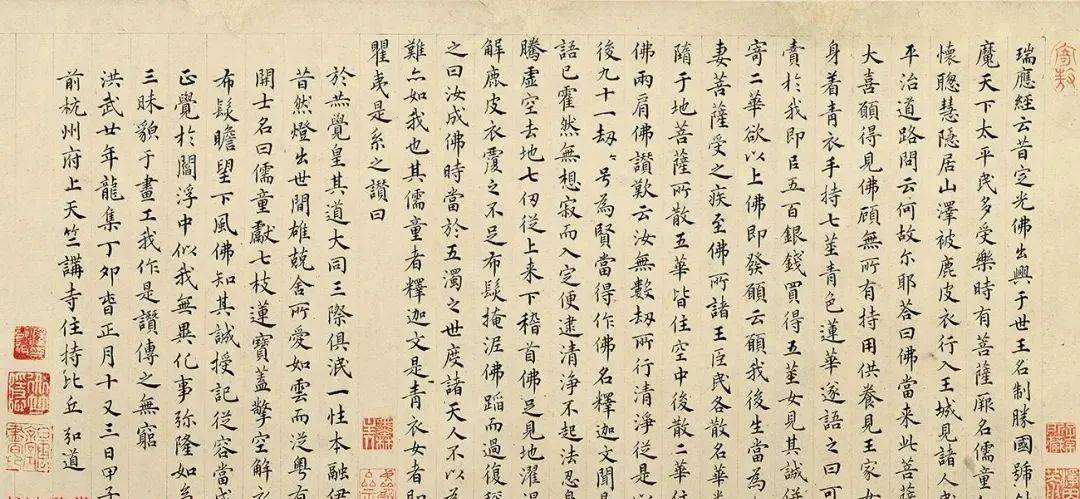 瑞應經云昔定光佛出興于世王名制勝國號
魔天下太平民多受樂時有菩薩厥名儒童
懷聰慧隱居山澤被鹿皮衣行入王城見諸人
平治道路問云何故尔耶荅曰佛當来此菩薩
大喜願得見佛顧無所有持用供養見王家女
身着青衣手持七莖青色蓮華遂語之曰可
賣於我即㠯五百銀錢買得五莖女見其誠
寄二華欲以上佛即發願云願我後生當為
妻菩薩受之疾至佛所諸王臣民各散名華
隨于地菩薩所散五華皆住空中後散二華住
佛兩肩佛讚歎云汝無數劫所行清淨從是以
後九十一劫劫号為賢當得作佛名釋迦文聞
語已霍然無想寂而入定便逮清淨不起法忍
騰虛空去地七仞從上来下稽首佛足見地濯
解鹿皮衣覆之不足布髮掩泥佛蹈而過復
之曰汝成佛時當於五濁之世度諸天人不以為
難亦如我也其儒童者釋迦文是青衣女者即
瞿夷是系之讚曰
於烝覺皇其道大同三際俱泯一性本融
昔然燈出世間雄兢舍所愛如雲而從粤有
開士名曰儒童獻七枝蓮寶蓋擎空解衣
布髮瞻望下風佛知其誠授記從容當成
正覺於閻浮中似我無異化事弥隆如
三昧貌于畫工我作是讚傳之無窮
洪武廿年龍集丁卯春正月十又三日甲子
前杭州府上天竺講寺住持比丘 弘道